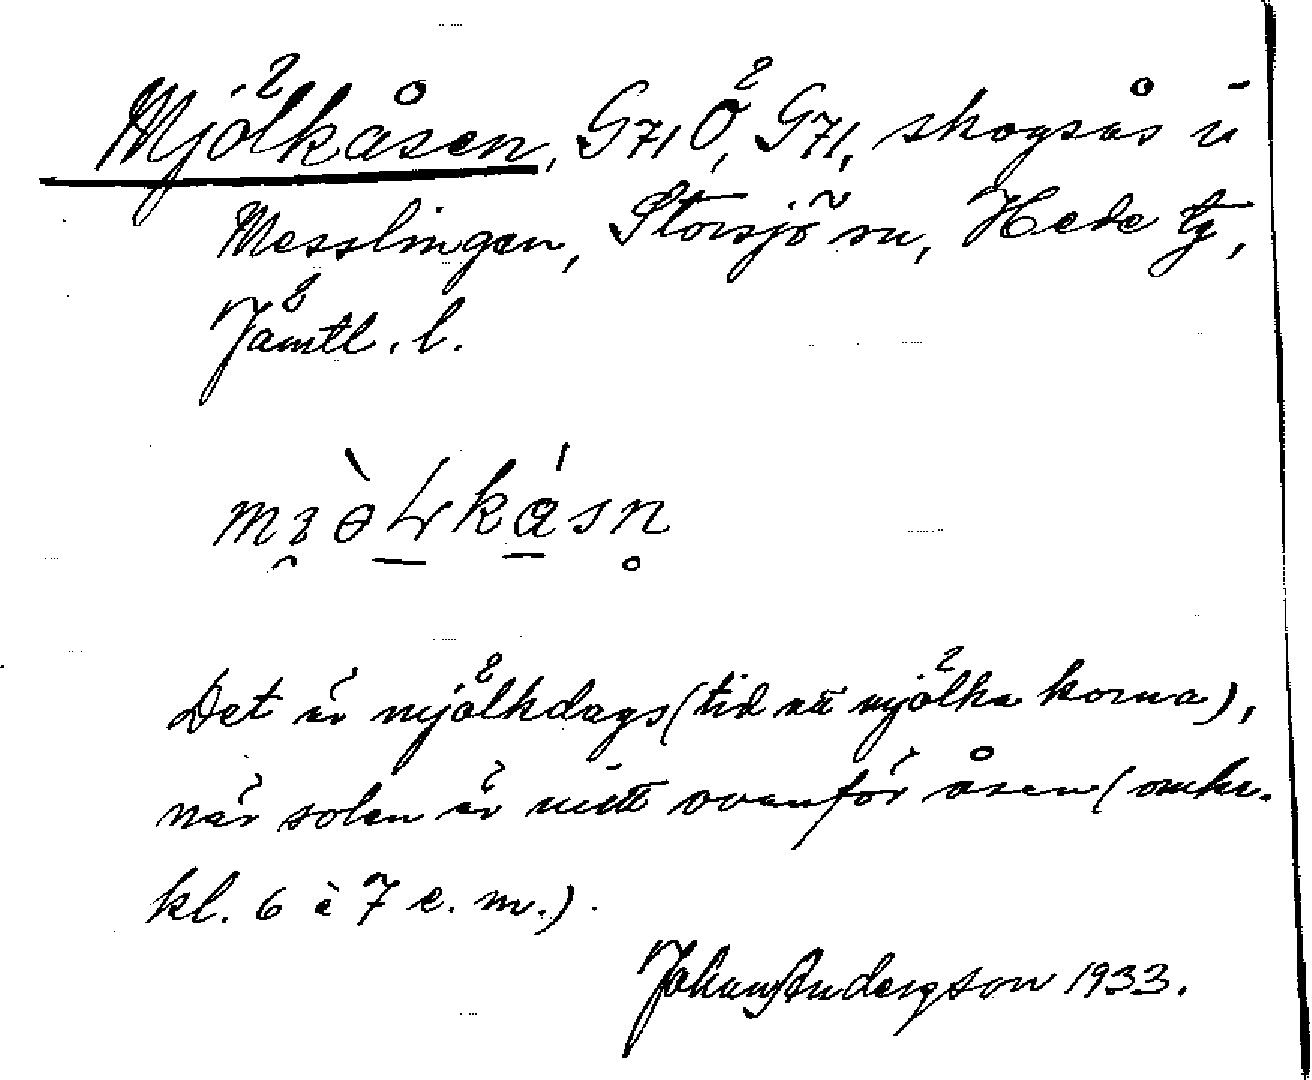 Mjölkåsen, G71 Ö, G71, skogsås i
Messlingen, Storsjö sn, Hede tg,
Jämtl. l.
Det är mjölkdags (tid att mjölka korna),
när solen är mitt ovanför åsen (omkr.
kl. 6 à 7 e. m.).
Johan Anderson 1933.